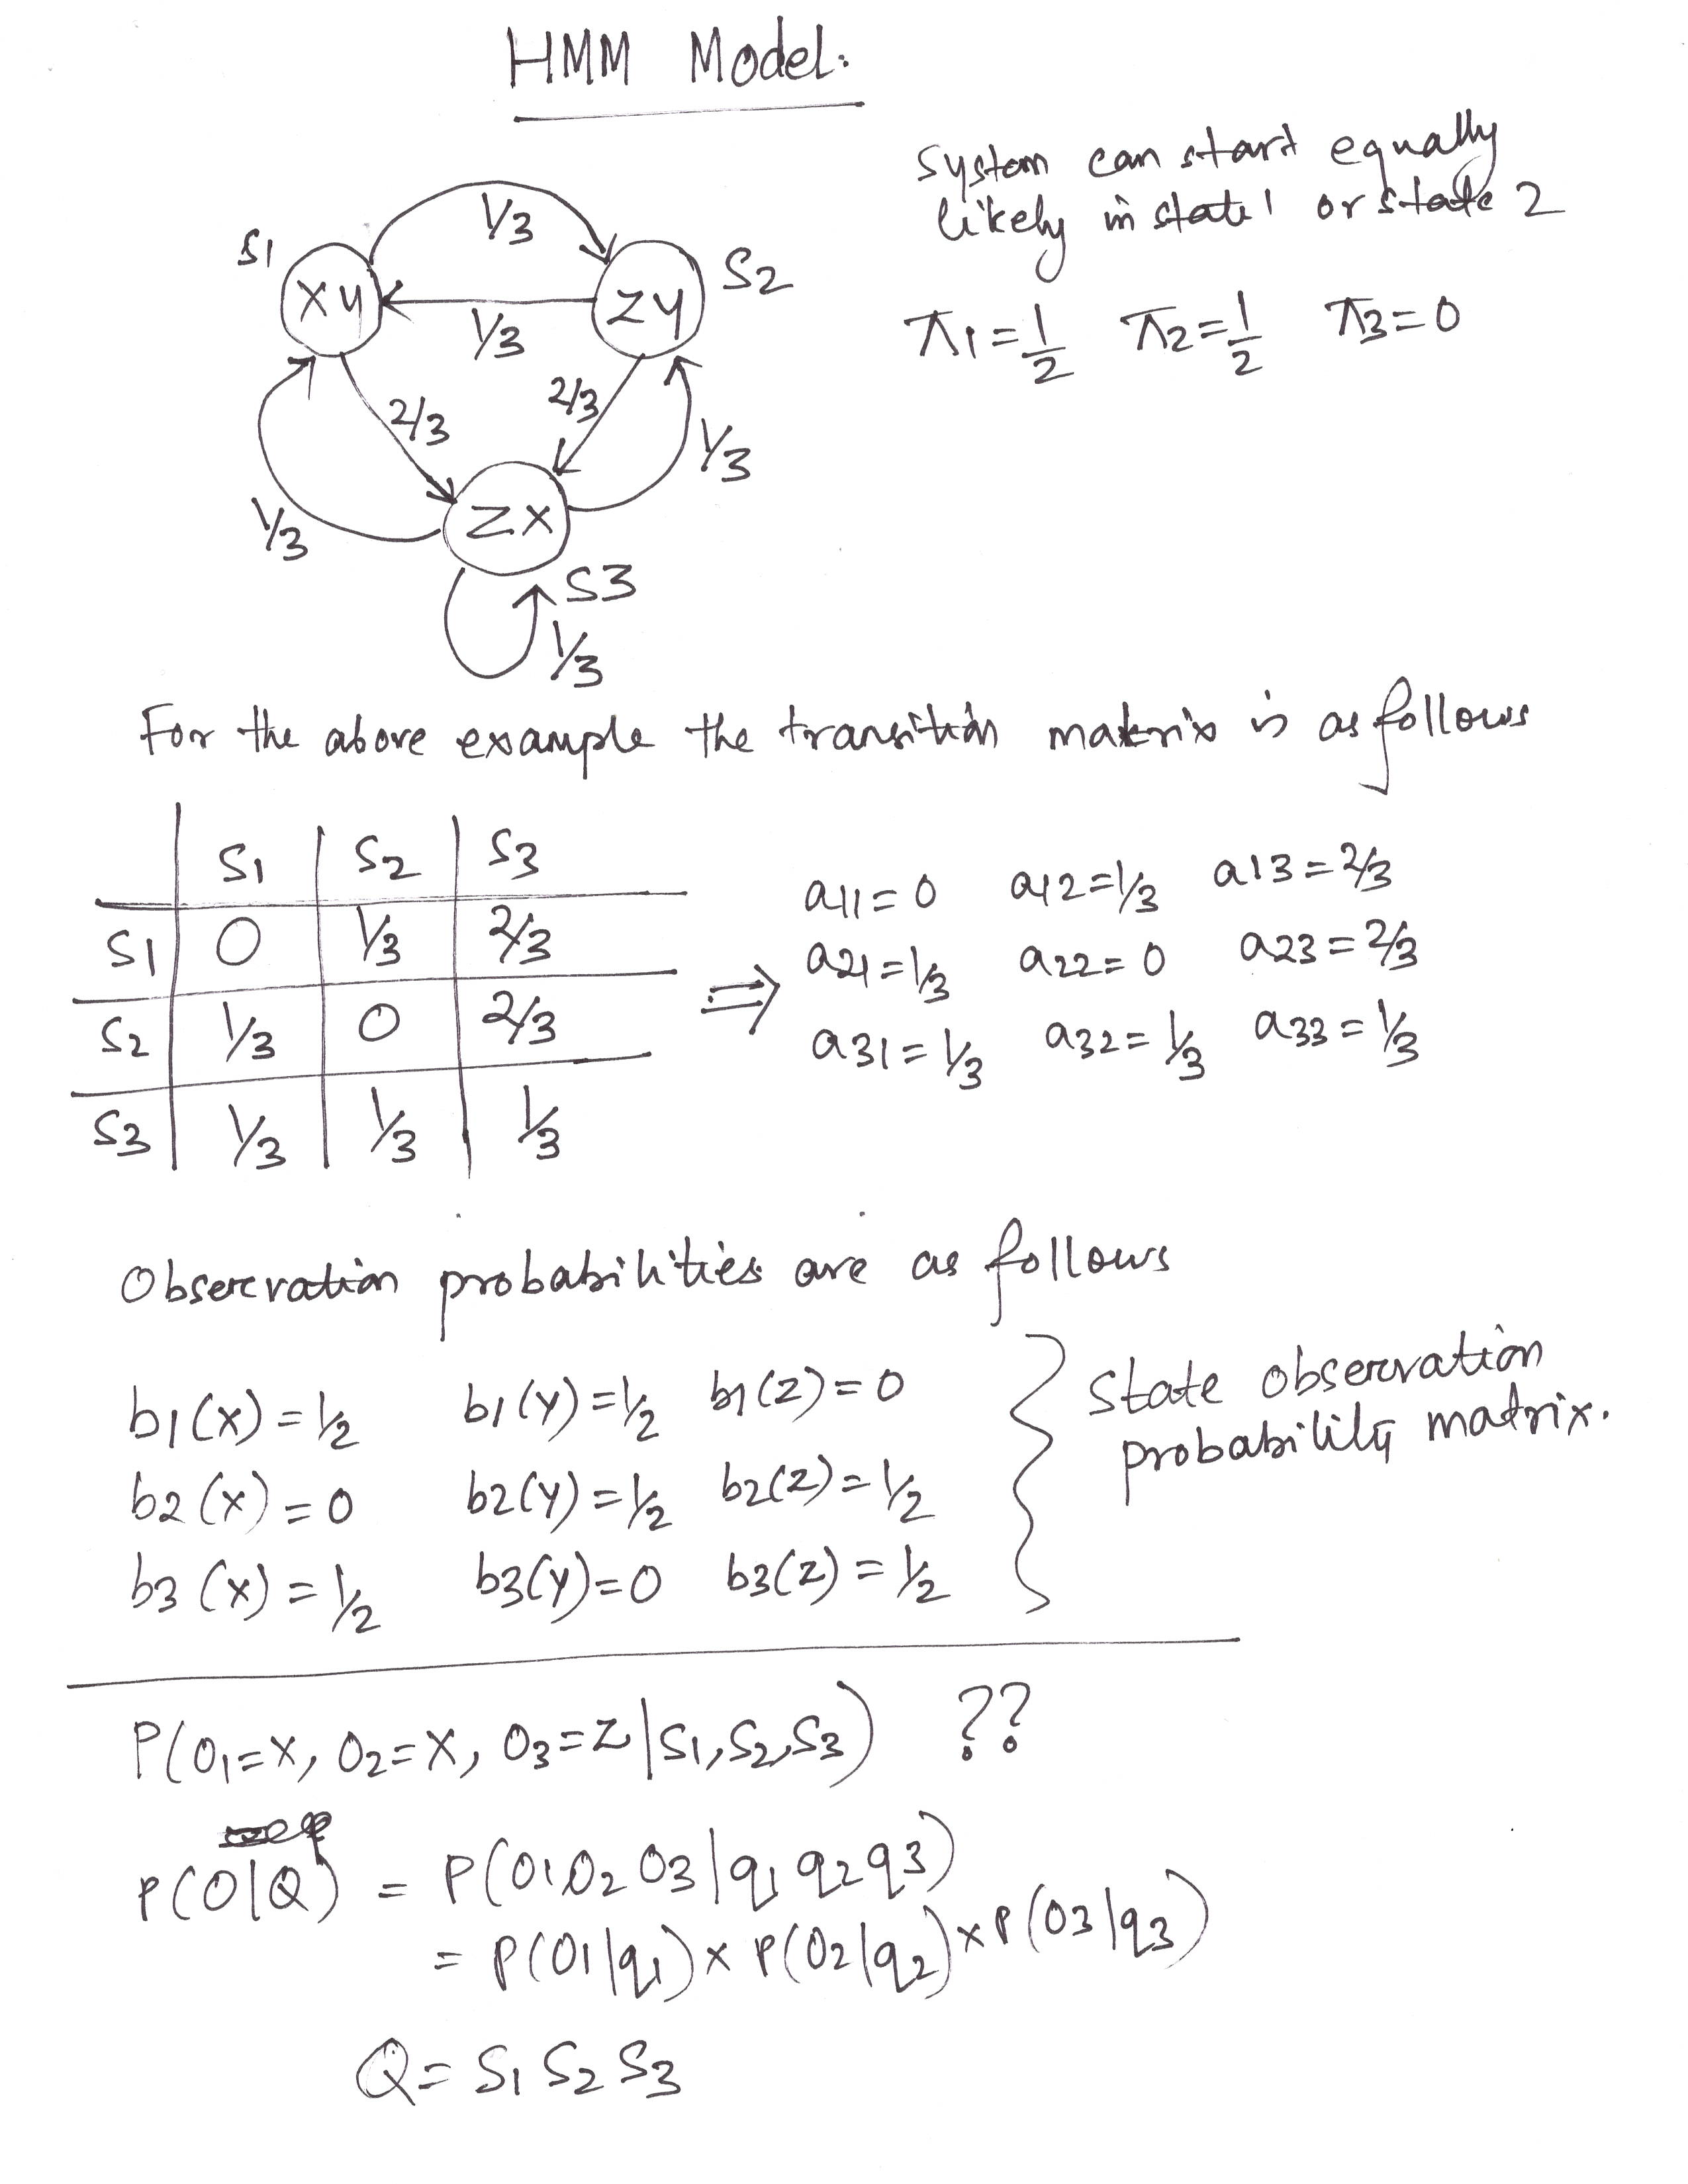 HMM Model:
System can start equally
likely in state 1 or state 2
π1 = 1/2 π2 = 1/2 π3 = 0
S1
1/3
S2
XY
ZY
1/3
2/3
2/3
1/3
1/3
ZX
S3
1/3
For the above example the transition matrix is as follows
S1 S2 S3
S1 0 1/3 2/3
S2 1/3 0 2/3
S3 1/3 1/3 1/3
⇒
a11 = 0 a12 = 1/3 a13 = 2/3
a21 = 1/3 a22 = 0 a23 = 2/3
a31 = 1/3 a32 = 1/3 a33 = 1/3
Observation probabilities are as follows
b1(x) = 1/2 b1(y) = 1/2 b1(z) = 0
b2(x) = 0 b2(y) = 1/2 b2(z) = 1/2
b3(x) = 1/2 b3(y) = 0 b3(z) = 1/2
State observation
probability matrix.
P(O1=X, O2=X, O3=Z | S1, S2, S3) ??
P(O|Q) = P(O1 O2 O3 | q1 q2 q3)
= P(O1|q1) x P(O2|q2) x P(O3|q3)
Q = S1 S2 S3